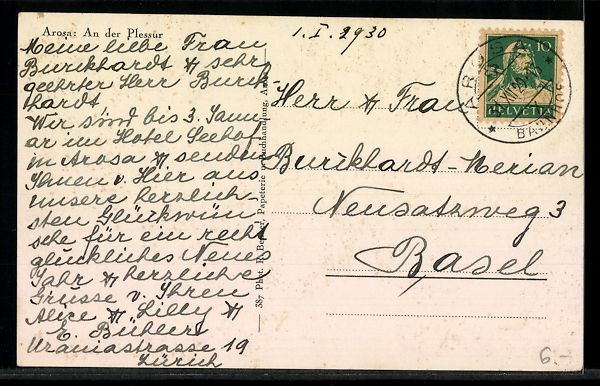 Arosa: An der Plessur
1.I.2930
Meine liebe Frau
Burckhardt & sehr
geehrter Herr Burck
hardt
Wir sind bis 3. Janu
ar im Hotel Seehof
in Arosa & senden
Ihnen v. Hier aus
unsere herzlich-
sten Glückwün
sche für ein recht
glückliches Neues
Jahr & herzliche
Grüsse v. Ihren
Alice & Lilly &
E. Bühler
Uraniastrasse 19
Zürich
387 Phot. Papeterie Buchhandlung,
10
HELVETIA
Herr & Frau
Burckhardt-Merian
Neusatzweg 3
Basel
6.-